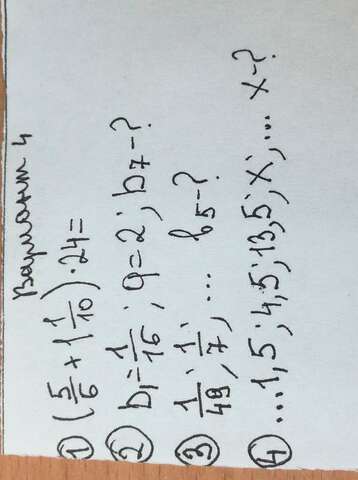 Вариант 4
① (5/6 + 1 1/10) · 24 =
② b₁ = 1/16; q = 2; b₇ - ?
③ 1/49; 1/7; ... b₅ - ?
④ ...1,5; 4,5; 13,5; x; ... x - ?